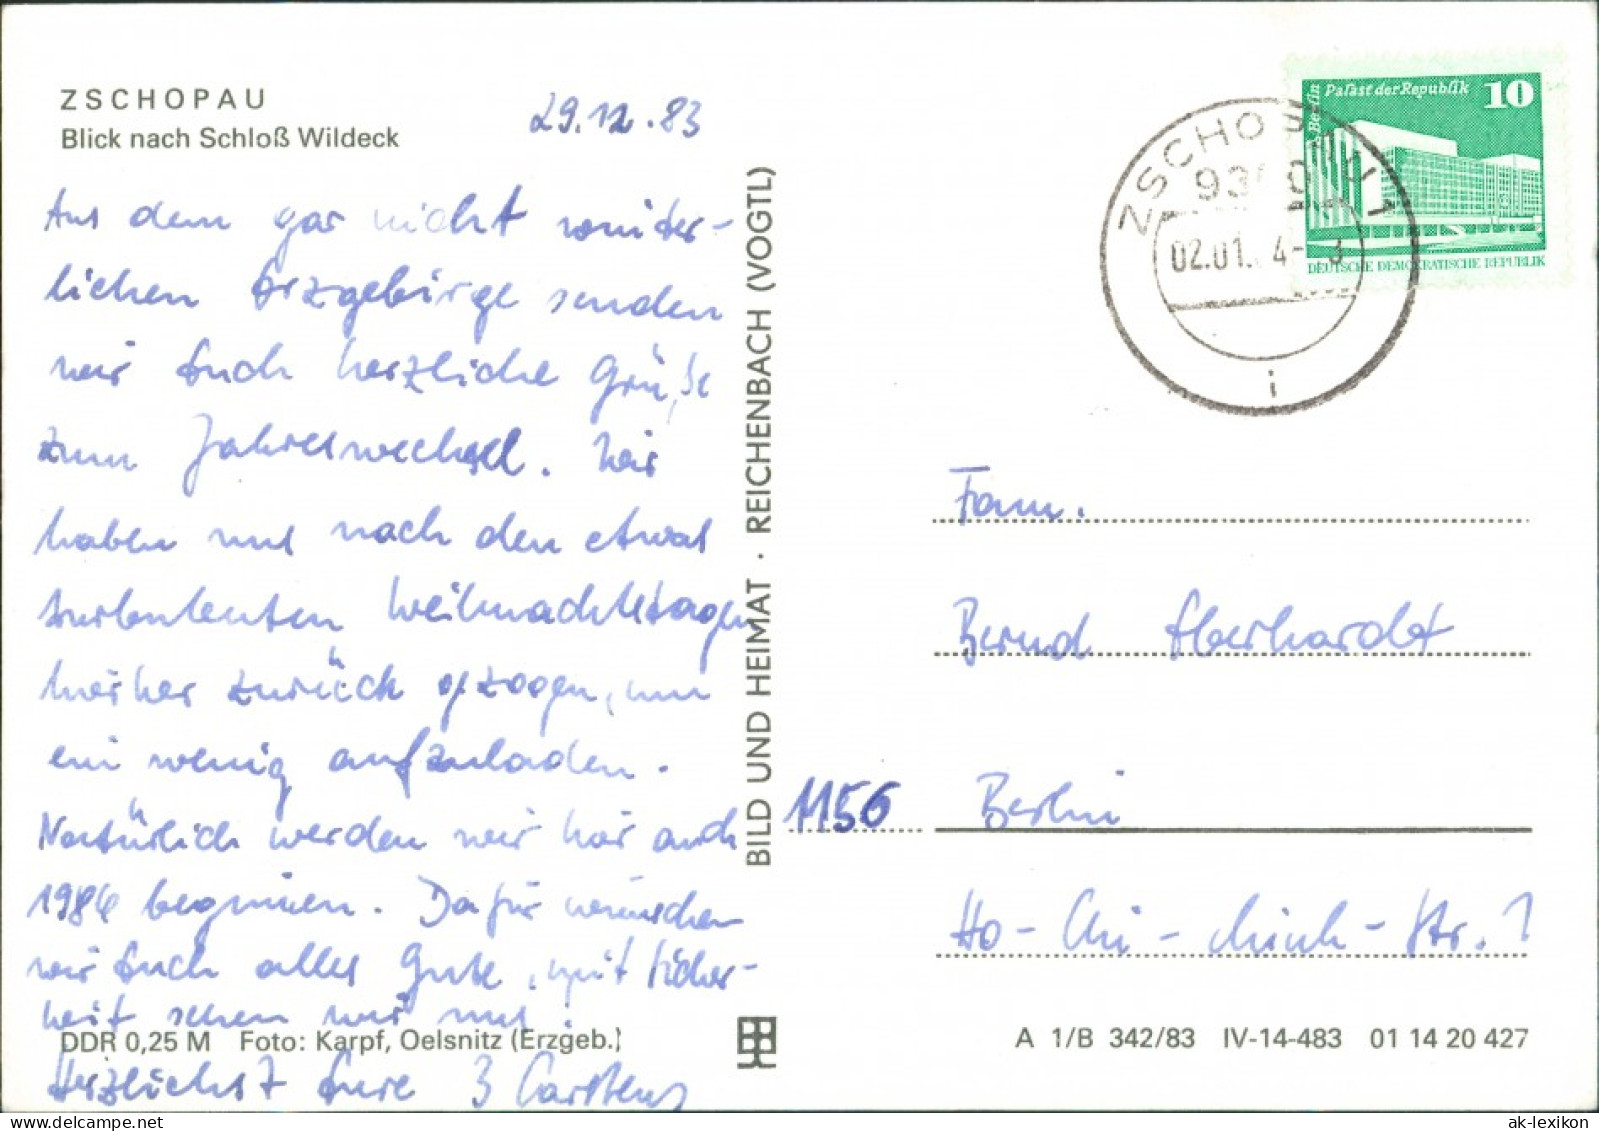 ZSCHOPAU
Blick nach Schloß Wildeck
29.12.83
Aus dem gar nicht winter-
lichen Erzgebirge senden
wir Euch herzliche Grüße
zum Jahreswechsel. Wir
haben uns nach den etwas
turbulenten Weihnachtstagen
hierher zurück gezogen, um
ein wenig aufzuladen.
Natürlich werden wir hier auch
1984 beginnen. Dafür wünschen
wir Euch alles Gute, mit Sicher-
heit sehen wir uns!
DDR 0,25 M Foto: Karpf, Oelsnitz (Erzgeb.)
Herzlichst Eure 3 Carstens
BILD UND HEIMAT · REICHENBACH (VOGTL)
Berlin Palast der Republik 10
DEUTSCHE DEMOKRATISCHE REPUBLIK
ZSCHOPAU 1
02.01.
i
Fam.
Bernd Eberhardt
1156 Berlin
Ho-Chi-Minh-Str. 1
A 1/B 342/83 IV-14-483 01 14 20 427
ak-lexikon